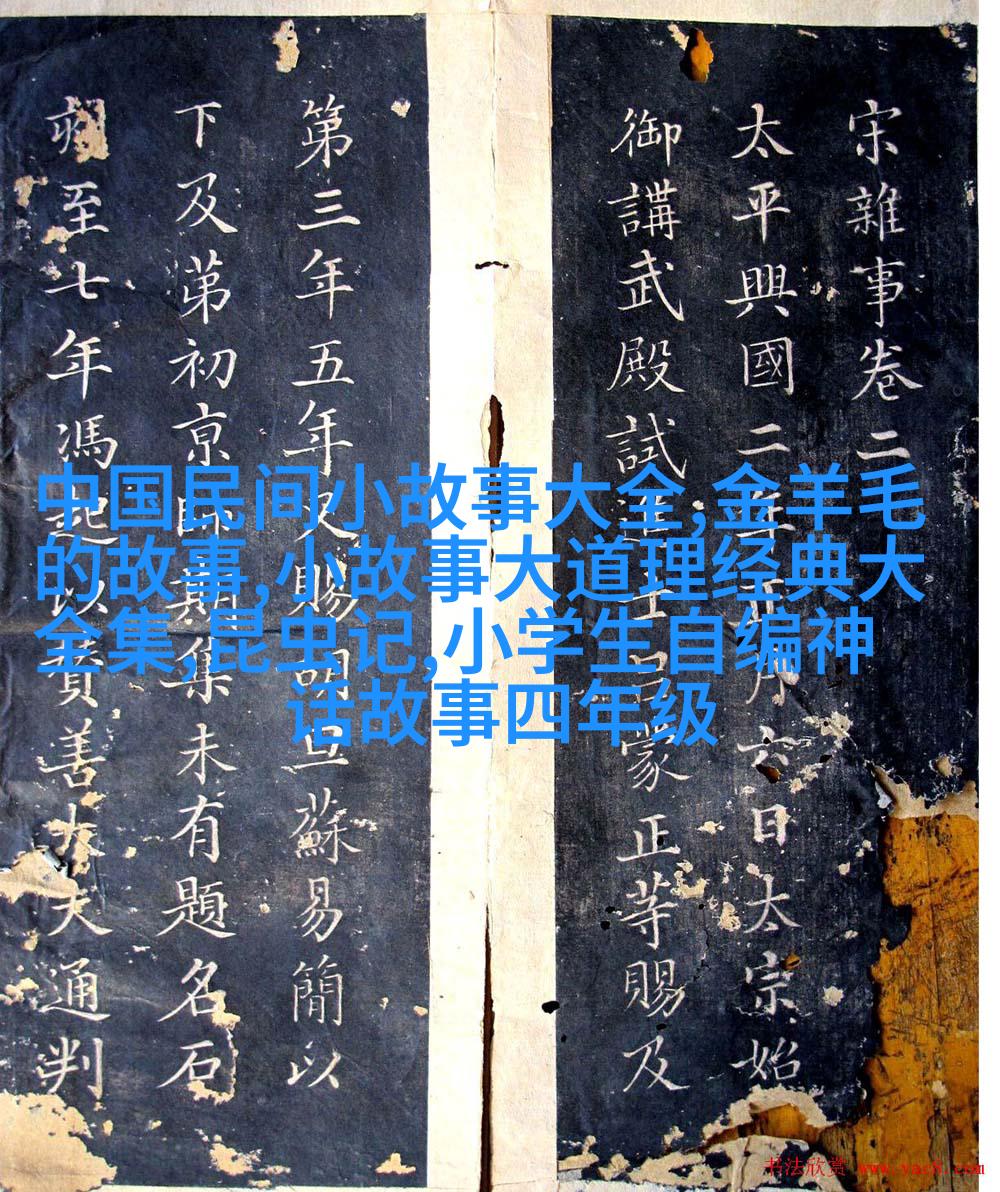 宋雜事卷二
太平興國二年正月六日太宗始
御講武殿試進士呂蒙正等賜及
第三年五年又賜胡旦蘇易簡以
下及苐初京師期集未有題名石
至七年馮起以賛善大夫通判
中国民间小故事大全,金羊毛
的故事,小故事大道理经典大
全集,昆虫记,小学生自编神
话故事四年级
书法欣赏 www.yac8.com